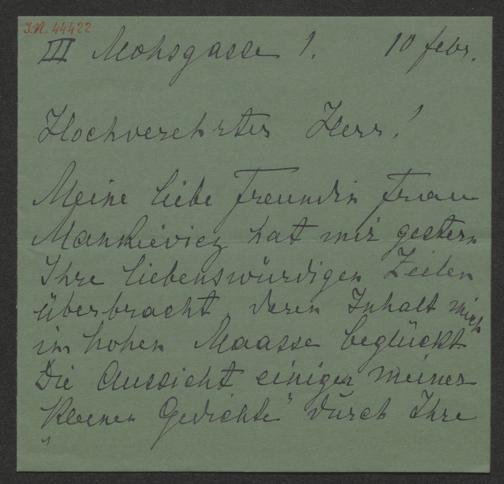 I.N. 44422
III Mohsgasse 1. 10 febr.
Hochverehrter Herr!
Meine liebe Freundin Frau
Mankievicz hat mir gestern
Ihre liebenswürdigen Zeilen
überbracht deren Inhalt mich
im hohen Maasse beglückt
Die Aussicht einiger meiner
„kleinen Gedichte" durch Ihre